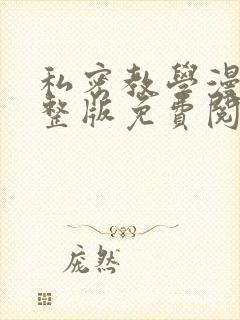 私密教學漫
整版免費閱
庞然